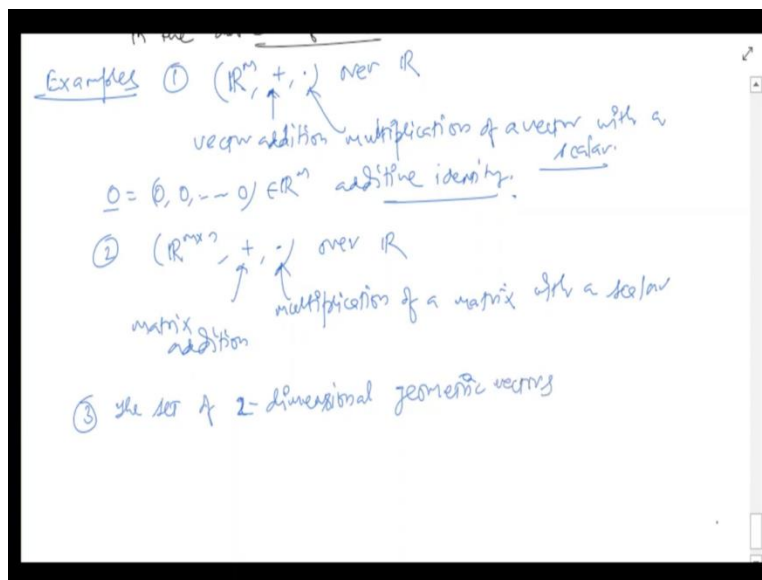 in the
Examples ① (ℝⁿ, +, ·) over ℝ
vector addition multiplication of a vector with a
scalar.
0 = (0, 0, -- 0) ∈ ℝⁿ additive identity.
② (ℝᵐˣⁿ, +, ·) over ℝ
multiplication of a matrix with a scalar
matrix
addition
③ The set of 2-dimensional geometric vectors